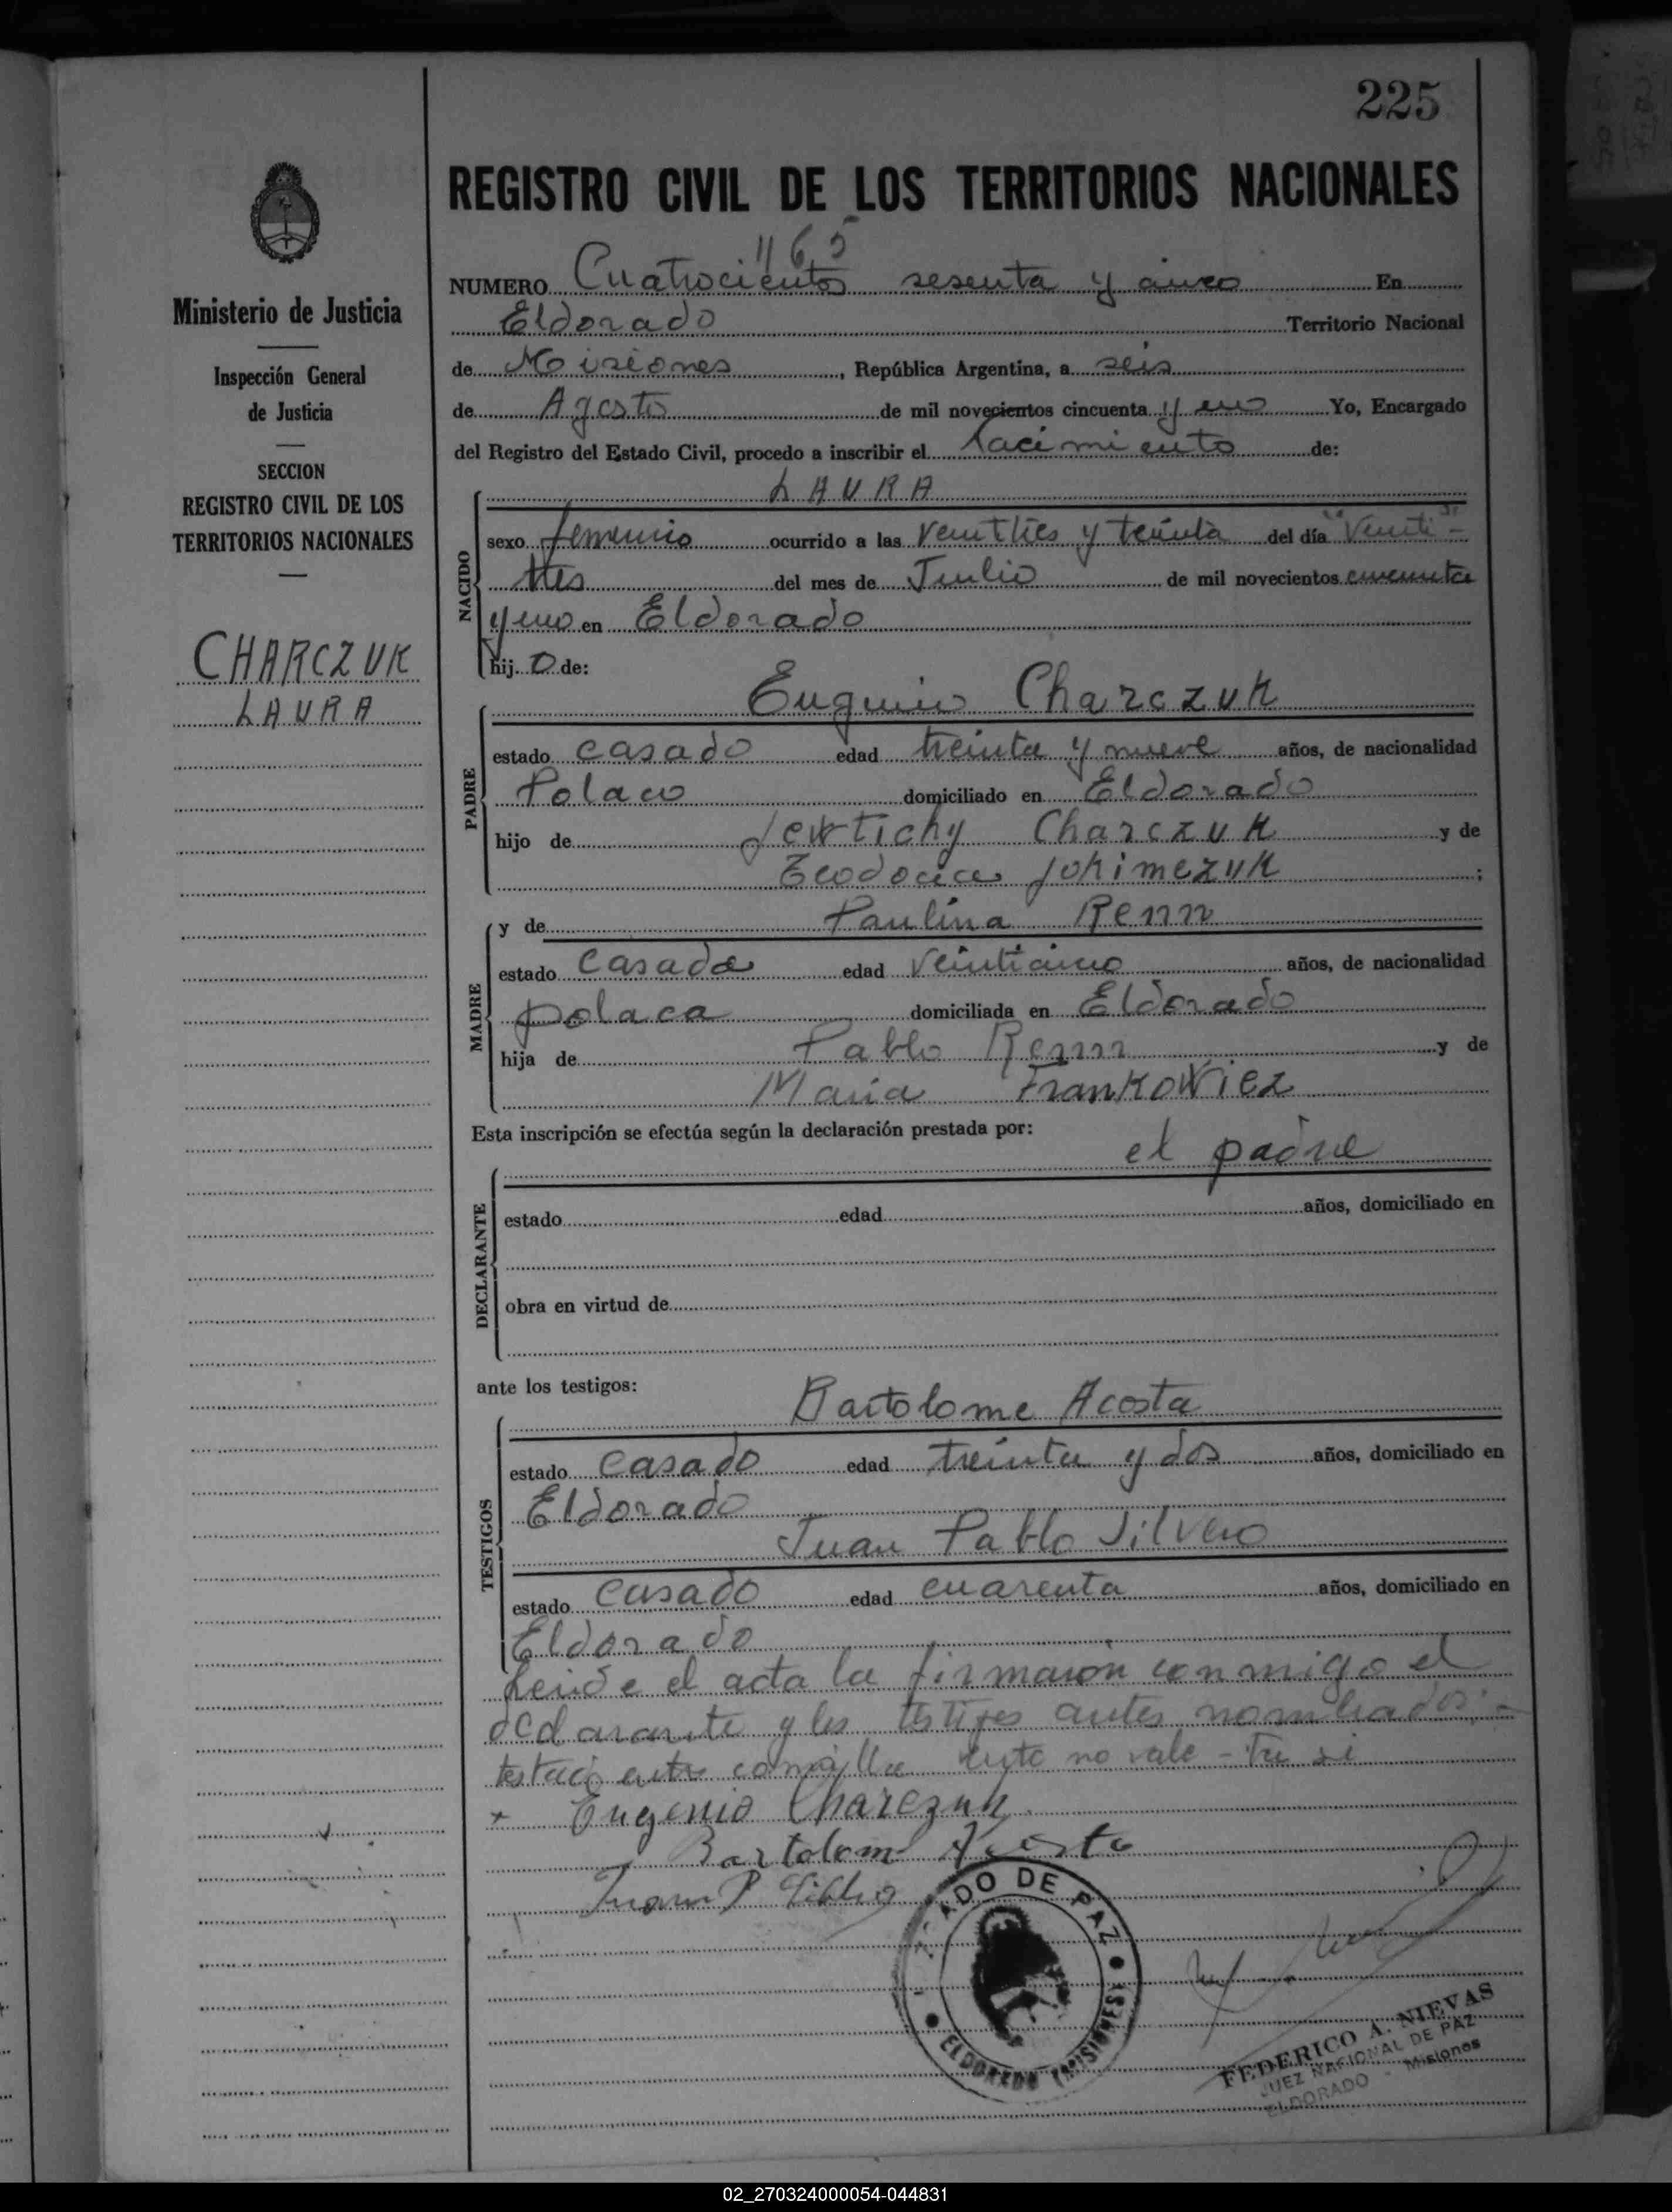 225
REGISTRO CIVIL DE LOS TERRITORIOS NACIONALES
Ministerio de Justicia
Inspección General
de Justicia
SECCION
REGISTRO CIVIL DE LOS
TERRITORIOS NACIONALES
CHARCZUK
LAURA
465
NUMERO Cuatrocientos sesenta y cinco En
Eldorado Territorio Nacional
de Misiones, República Argentina, a seis
de Agosto de mil novecientos cincuenta y uno Yo, Encargado
del Registro del Estado Civil, procedo a inscribir el nacimiento de:
NACIDO
LAURA
sexo femenino ocurrido a las y treinta del día "Veinti-
tres del mes de Julio de mil novecientos cincuenta
y uno en Eldorado
hij o de:
PADRE
Eugenio Charczuk
estado casado edad treinta y nueve años, de nacionalidad
Polaco domiciliado en Eldorado
hijo de Charczuk y de
Jokimczuk;
MADRE
y de Paulina Renn
estado casada edad veinticinco años, de nacionalidad
polaca domiciliada en Eldorado
hija de Pablo Renn y de
Maria Frankowicz
Esta inscripción se efectúa según la declaración prestada por:
el padre
DECLARANTE
estado edad años, domiciliado en
obra en virtud de
ante los testigos:
TESTIGOS
Bartolome Acosta
estado casado edad treinta y dos años, domiciliado en
Eldorado
Juan Pablo Silvero
estado casado edad cuarenta años, domiciliado en
Eldorado
Leida el acta la firmaron conmigo el
declarante y los testigos antes nombrados:-
testado entre comilla no vale -
x Eugenio Charczuk
Bartolome Acosta
Juan P. Silvero
ADO DE PAZ
ELDORADO (MISIONES)
FEDERICO A. NIEVAS
JUEZ NACIONAL DE PAZ
ELDORADO - Misiones
02_270324000054-044831